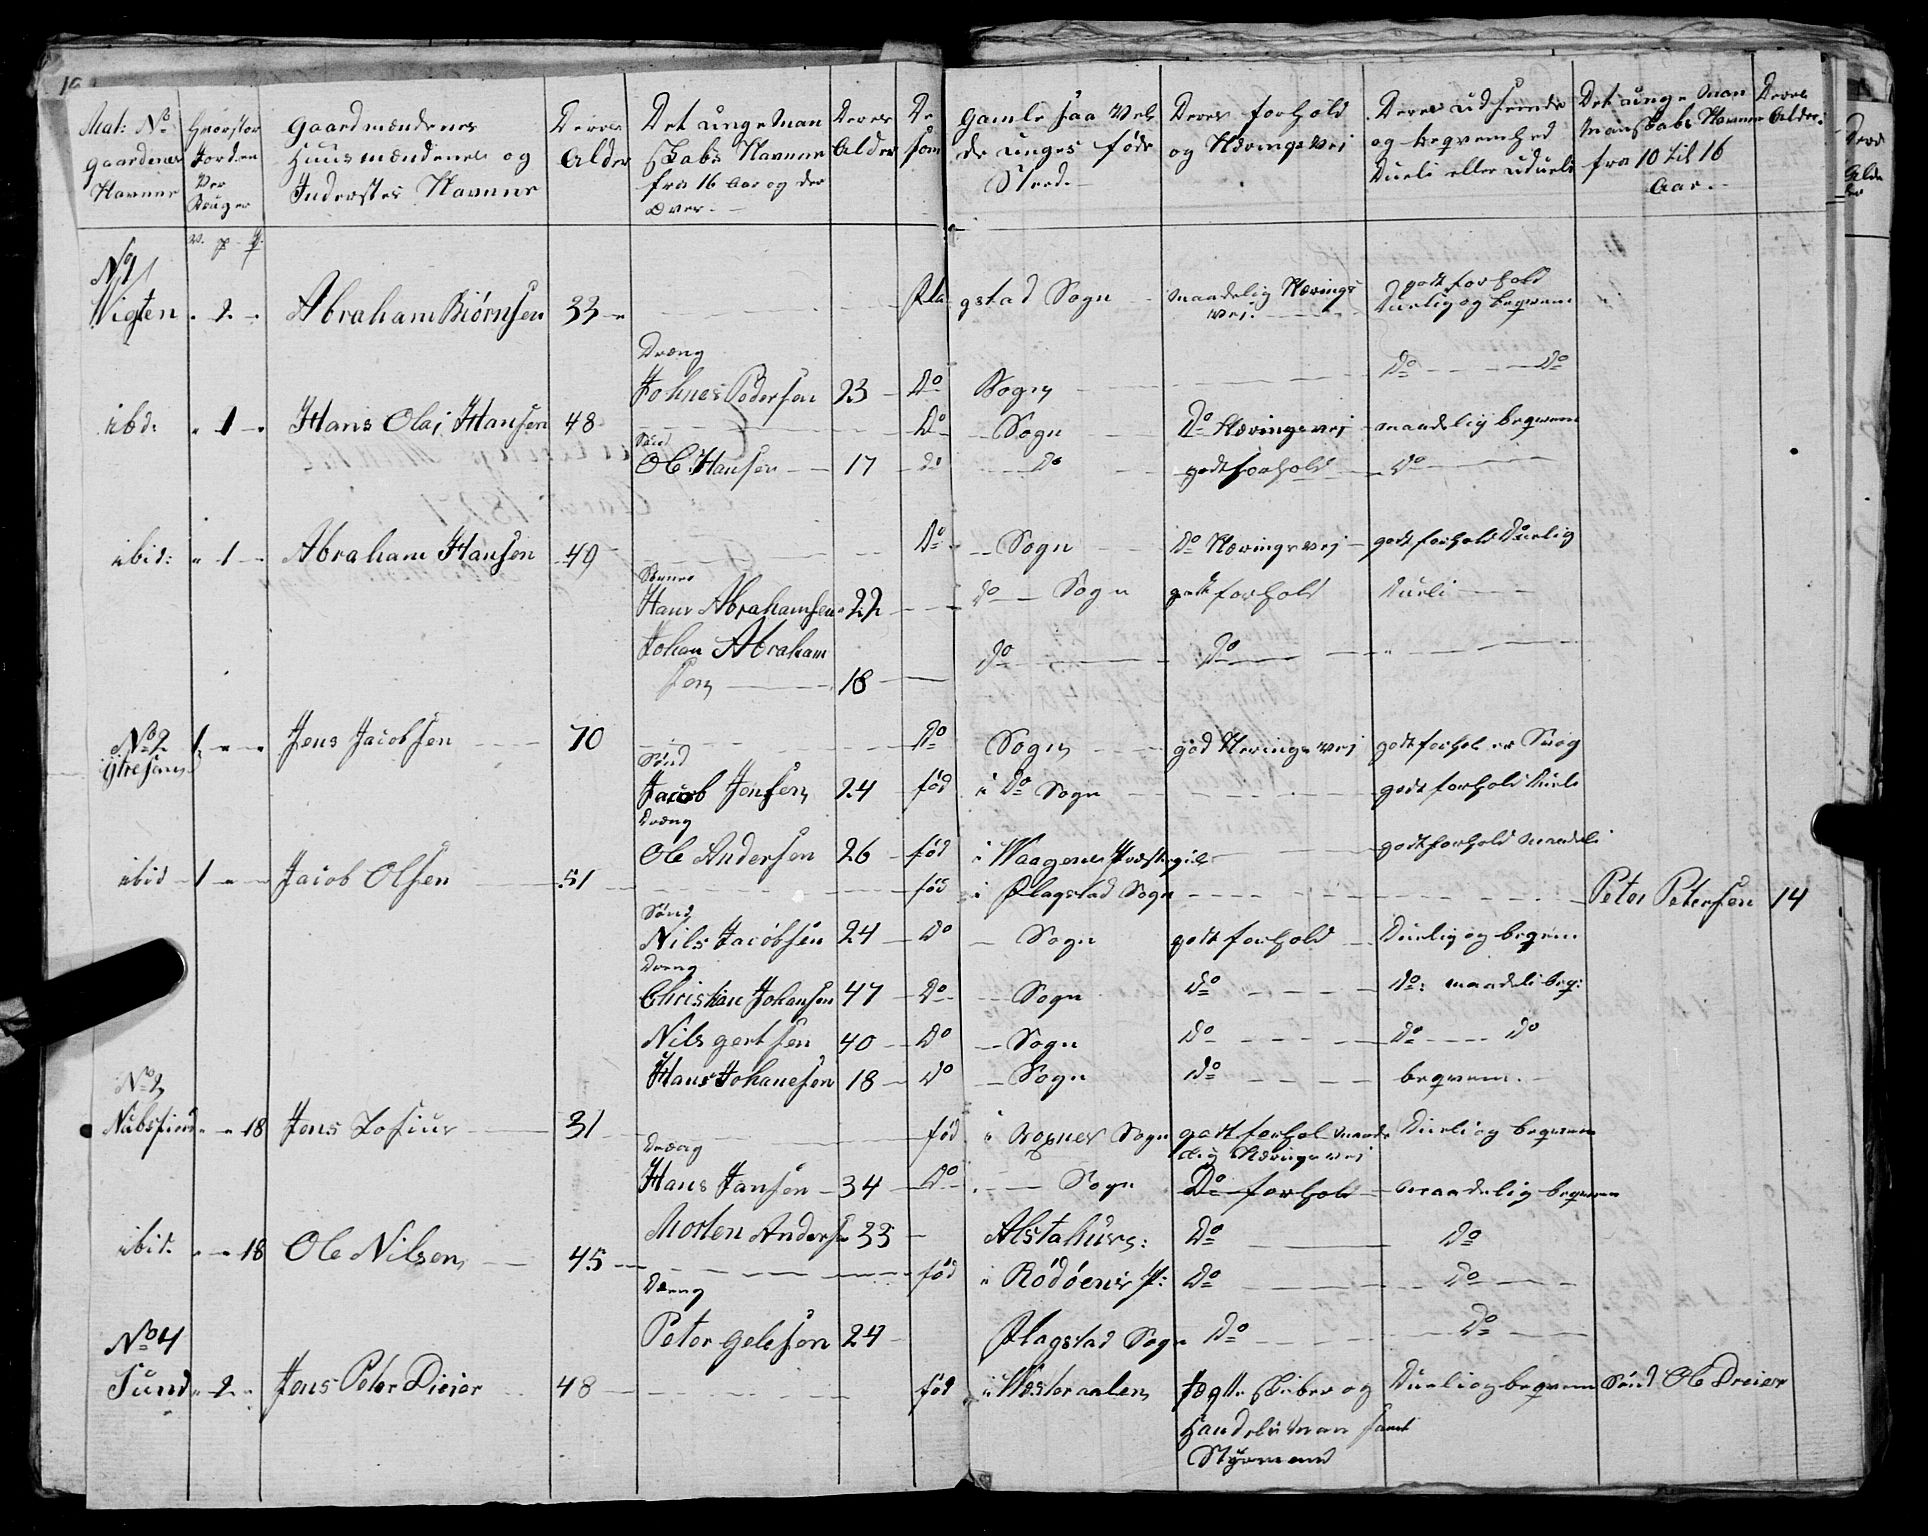 Mat: No Gaardenes Navne
Hvor stor Jorden Der Bruger
Gaardmændenes Huusmændenes og Inderstes Navne
Deres Alder
Det unge Mandskabs Navne fra 16 Aar og der over.
Deres Alder
De gamle saa vel som de unges føde Sted.
Deres forhold og Nærings Vej
Deres udseende og beqvemhed Dueli eller udueli
Det unge Mandskabs Navne fra 10 til 16 Aar.
Deres Alder
No 1
Vigten 2 Abraham Biørnsen 33 Flagstad Sogn maadelig Nærings Vej. godt forhold Duelig og beqvem
Dræng
Johnes Pedersen 23 Do Sogn Do Do
ibd: 1 Hans Olaj Hansen 48 Do Sogn Do Næringsvej maadelig beqvem
Sønd
Ole Hansen 17 do do godt forhold Do
ibid: 1 Abraham Hansen 49 Do Sogn Do Næringsvej godt forhold Duelig
Sønner
Hans Abrahamsen 22 Do Sogn godt forhold Dueli
Johan Abraham
sen 18 Do Do
No 2 1 Jens Jacobsen 70 Do Sogn god Næringsvej godt forhol er Svag
Sønd
Jacob Jensen 24 fød i Do Sogn godt forhold Dueli
Dræng
Ole Andersen 26 fød i Waagens Præstegiel godt forhold maadeli
ibid 1 Jacob Olsen 51 fød i Flagstad Sogn Peter Petersen 14
Sønd
Nils Jacobsen 24 Do Sogn godt forhold Duelig og beqvem
Dreng
Christian Johansen 47 Do Sogn Do Do: maadeli beq:
Nils Gertsen 40 Do Sogn Do Do Do
Hans Johanesen 18 Do Sogn Do beqvem.
Nubsfiord 18 Jens Losius 31 fød i Boxnes Sogn godt forhol maade
lig Næringsvej Dueli og beqvem
Dræng
Hans Jansen 34 Do Sogn Do forhold maadelig beqvem
Morten Anders 33 Alstahuus: Do Do
ibid. 18 Ole Nilsen 45 fød i Rødøens P: Do Do
Dreng
Peter Gelesen 24 Flagstad Sogn Do Do
No 4
Sund 2 Jens Peter Dreier 48 fød i Westeraalen Jægte Skiber og Dueli og beqvem Sønd Ole Dreier
Handelsman samt
Styrmand